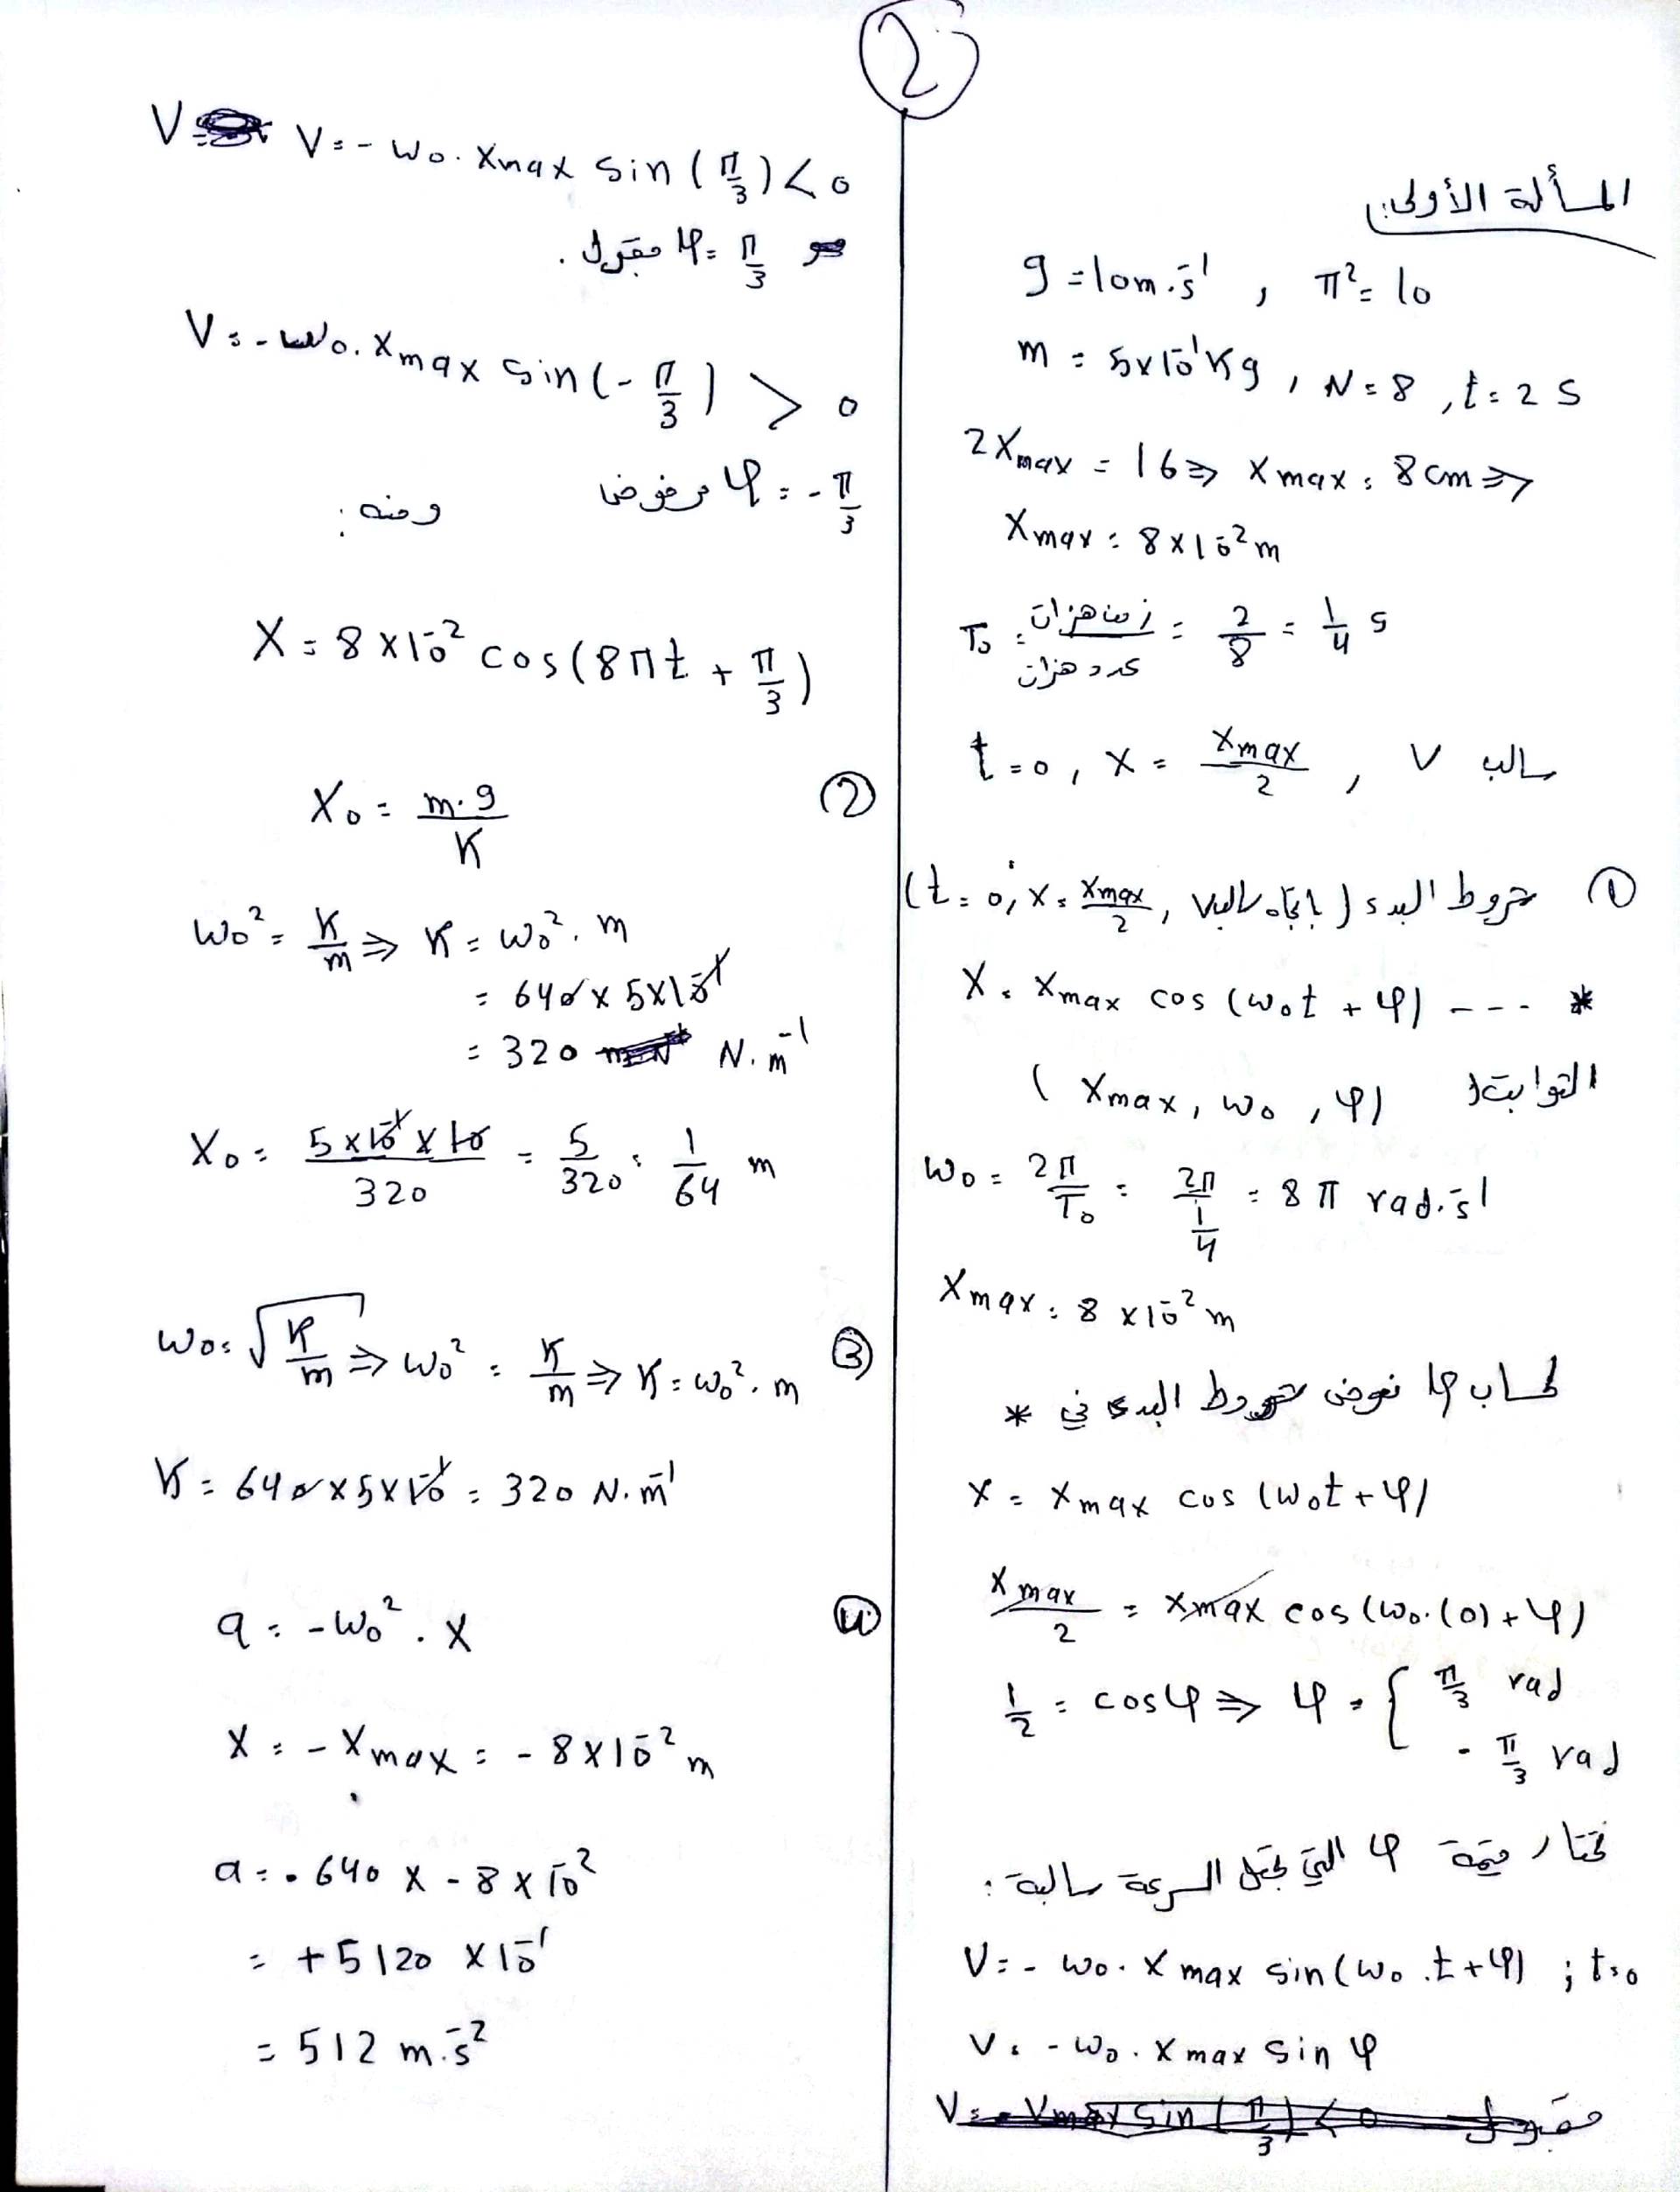 2
المسألة الأولى:
g = 10 m.s⁻¹ , π² = 10
m = 5×10⁻¹ Kg , N = 8 , t = 2 s
2Xmax = 16 ⇒ Xmax = 8 cm ⇒
Xmax = 8×10⁻² m
T₀ = زمن هزات / عدد هزات = 2/8 = 1/4 s
t = 0 , X = Xmax/2 , V سالب
① شروط البدء (t = 0, X = Xmax/2, باتجاه سالب)
X = Xmax cos (ω₀t + φ) --- *
الثوابت (Xmax, ω₀, φ)
ω₀ = 2π/T₀ = 2π/(1/4) = 8π rad.s⁻¹
Xmax = 8×10⁻² m
لحساب φ نعوض شروط البدء في *
X = Xmax cos (ω₀t + φ)
Xmax/2 = Xmax cos (ω₀.(0) + φ)
1/2 = cos φ ⇒ φ = { π/3 rad
- π/3 rad
نختار قيمة φ التي تجعل السرعة سالبة :
V = - ω₀. Xmax sin (ω₀.t + φ) ; t = 0
V = - ω₀. Xmax sin φ
V = - Vmax sin (π/3) < 0 مقبول
V = V = - ω₀. Xmax sin (π/3) < 0
φ = π/3 مقبول .
V = - ω₀. Xmax sin (- π/3) > 0
φ = - π/3 مرفوض ومنه :
X = 8×10⁻² cos (8πt + π/3)
② X₀ = m.g/K
ω₀² = K/m ⇒ K = ω₀². m
= 640 × 5×10⁻¹
= 320 N.m⁻¹
X₀ = 5×10⁻¹×10/320 = 5/320 = 1/64 m
③ ω₀ = √(K/m) ⇒ ω₀² = K/m ⇒ K = ω₀². m
K = 640×5×10⁻¹ = 320 N.m⁻¹
④ a = - ω₀². X
X = - Xmax = - 8×10⁻² m
a = - 640 × - 8×10⁻²
= + 5120 ×10⁻¹
= 512 m.s⁻²